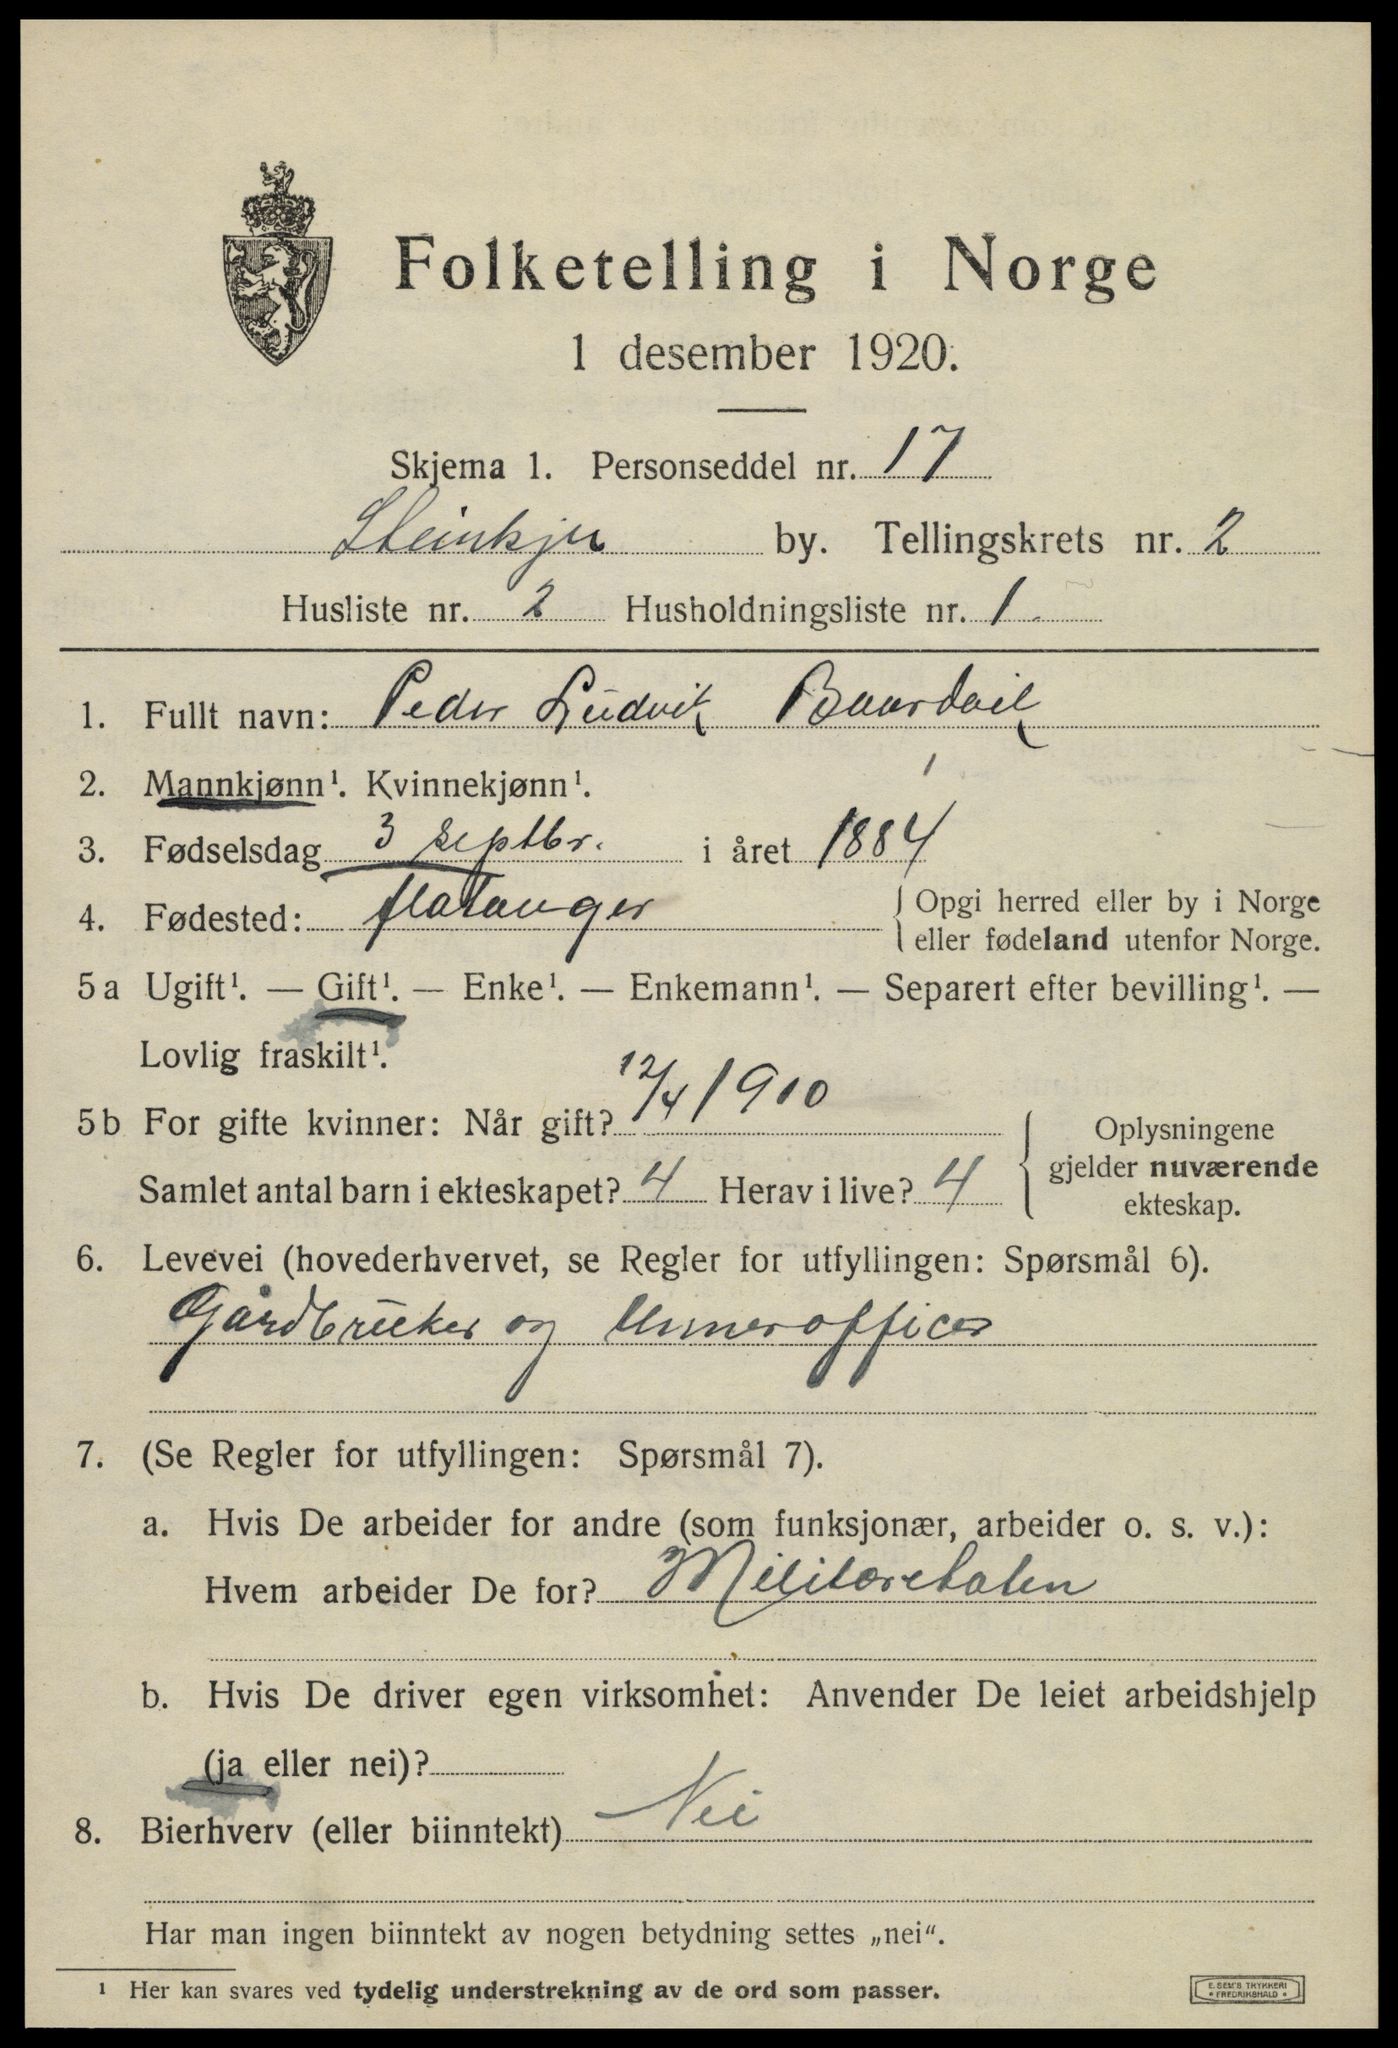 Folketelling i Norge
1 desember 1920.
Skjema 1. Personseddel nr. 17
Steinkjer by. Tellingskrets nr. 2
Husliste nr. 2 Husholdningsliste nr. 1
1. Fullt navn: Peder Ludvik Baardvik
2. Mannkjønn¹. Kvinnekjønn¹.
3. Fødselsdag 3 septbr. i året 1884
4. Fødested: flatanger { Opgi herred eller by i Norge
eller fødeland utenfor Norge.
5a Ugift¹. — Gift¹. — Enke¹. — Enkemann¹. — Separert efter bevilling¹. —
Lovlig fraskilt¹.
5b For gifte kvinner: Når gift? 12/4 1910
Samlet antal barn i ekteskapet? 4 Herav i live? 4
{ Oplysningene
gjelder nuværende
ekteskap.
6. Levevei (hovederhvervet, se Regler for utfyllingen: Spørsmål 6).
Gårdbruker og Unnerofficer
7. (Se Regler for utfyllingen: Spørsmål 7).
a. Hvis De arbeider for andre (som funksjonær, arbeider o. s. v.):
Hvem arbeider De for? Militæretaten
b. Hvis De driver egen virksomhet: Anvender De leiet arbeidshjelp
(ja eller nei)?
8. Bierhverv (eller biinntekt) Nei
Har man ingen biinntekt av nogen betydning settes „nei".
¹ Her kan svares ved tydelig understrekning av de ord som passer.
E. SEM'S TRYKKERI
• FREDRIKSHALD •